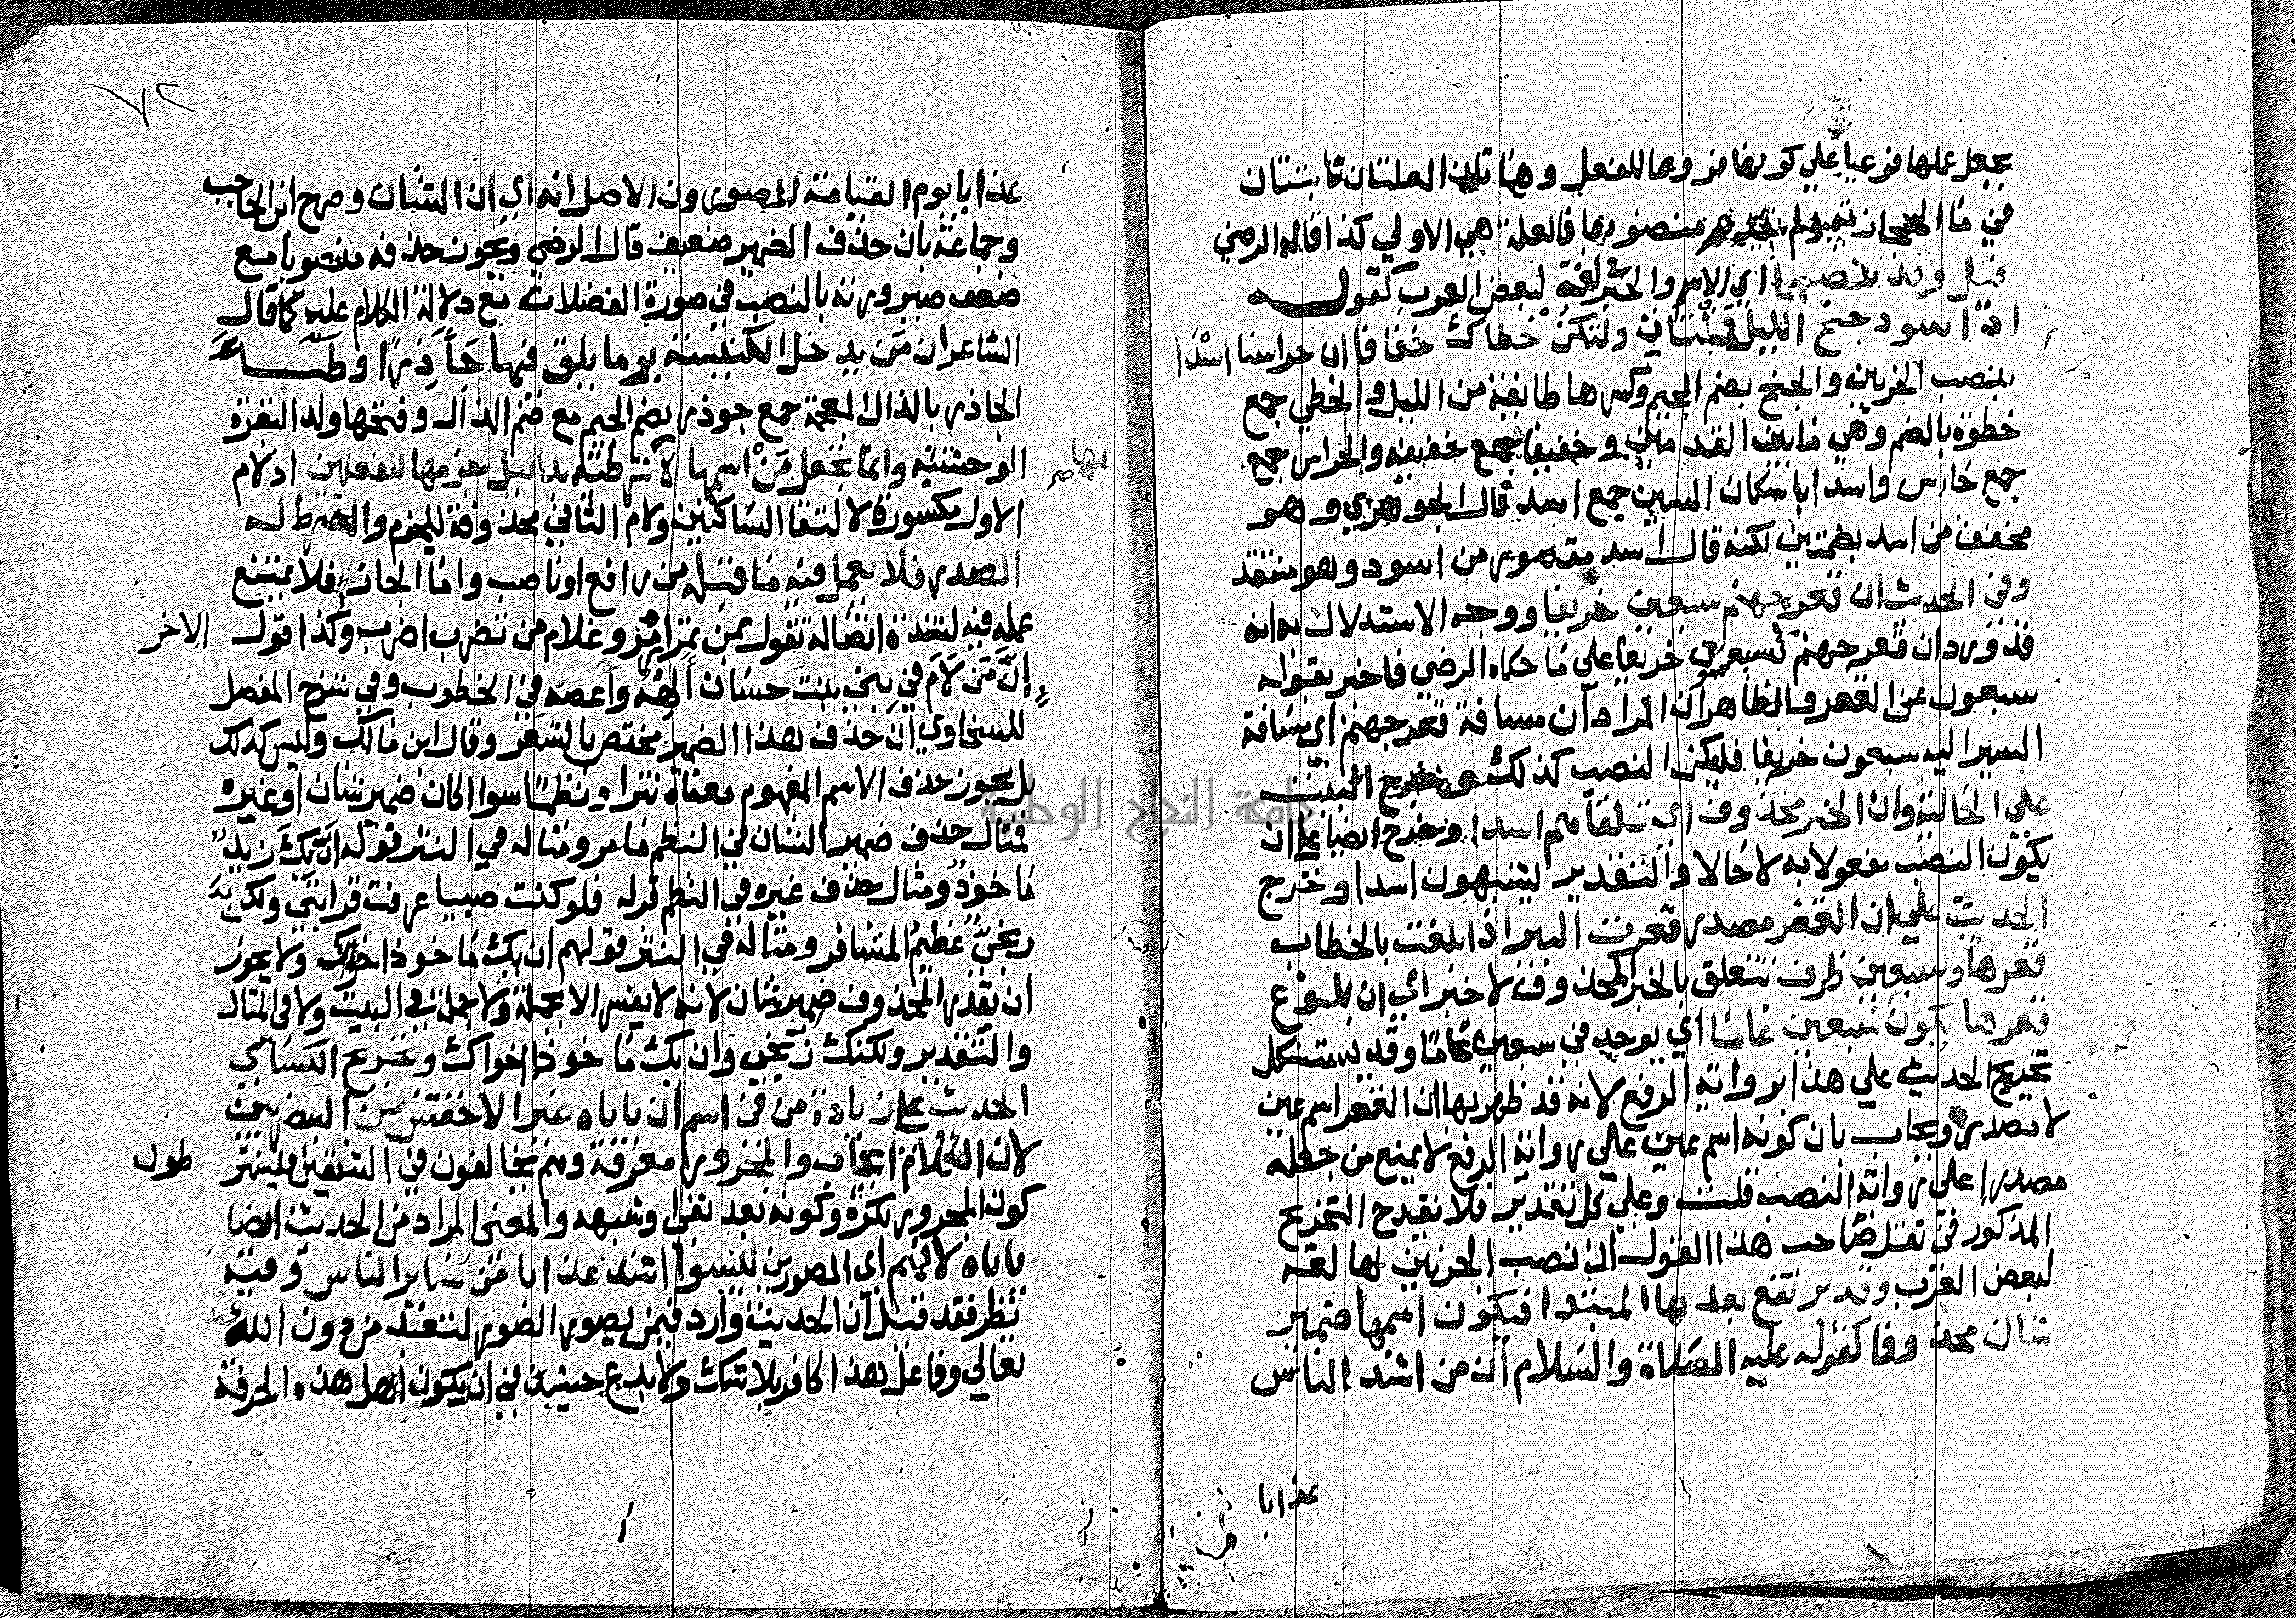 يجعل عملها فرعيا علي كونها فروعا للفعل وهاتان العلتان ثابتتان
في ما الحجازية ولم منصوبها فالعلة هي الاولي كذا قاله الرضي
قيل وقد تنصبهما اي الاسم والخبر لغة لبعض العرب كقوله
اذا اسود جنح الليل فلتات ولتكن خطاك خفافا ان حراسنا اسدا
بنصب الجزءين والجنح بضم الجيم وكسرها طايفة من الليل والخطي جمع
خطوة بالضم وهي ما بين القدمين وخفيفا جمع خفيفة والحراس جمع
جمع حارس واسدا باسكان السين جمع اسد قال الجوهري وهو
مخفف من اسد بضمتين لكنه قال اسد مقصور من اسود وهو منتقد
وفي الحديث ان قعر جهنم سبعين خريفا ووجه الاستدلال به انه
قد ورد ان قعر جهنم لسبعون خريفا علي ما حكاه الرضي فاخبر بقوله
سبعون عن القعر والظاهر ان المراد ان مسافة قعر جهنم اي مسافة
السير اليه سبعون خريفا فليكن النصب كذلك وخرج البيت
علي الحالية وان الخبر محذوف اي تلقاهم اسدا وخرج ايضا علي ان
يكون النصب مفعولا به لا حالا والتقدير ليشبهون اسدا وخرج
الحديث علي ان القعر مصدر قعرت البير اذا بلغت بالخطاب
قعرها وسبعين ظرف تتعلق بالخبر المحذوف لا خبر اي ان بلوغ
قعرها يكون سبعين عاما اي يوجد في سبعين عاما وقد يستشكل
تخريج الحديث علي هذا برواية الرفع لانه قد ظهر بها ان القعر اسم عين
لا مصدر ويجاب بان كونه اسم عين علي رواية الرفع لا يمنع من جعله
مصدرا علي رواية النصب قلت وعلي كل تقدير فلا نقدح التخريج
المذكور في نقل صاحب هذا القول ان نصب الجزءين بها لغة
لبعض العرب وقد يرتفع بعدها المبتدا فيكون اسمها ضمير
شان محذوفا كقوله عليه الصلاة والسلام ان من اشد الناس
عذابا
٧٢
عذابا يوم القيامة المصورون الاصل انه اي ان الشان وصرح ابن الحاجب
وجماعة بان حذف الضمير ضعيف قال الرضي ويجوز حذفه منصوبا مع
ضعف صيرورته بالنصب في صورة الفضلات مع دلالة الكلام عليه كما قال
الشاعر ان من يدخل الكنيسة يوما يلق فيها جآذرا وظباء
الجاذر بالذال المعجمة جمع جوذر بضم الجيم مع ضم الذال وفتحها ولد البقرة
الوحشية وانما تجعل من اسمها لانها شرطية بدليل جزمها للفعلين اذ لام
الاول مكسورة لالتقا الساكنين ولام الثاني محذوفة للجزم والشرط له
الصدر فلا يعمل فيه ما قبله من رافع او ناصب واما الجار فلا يمتنع
عمله فيه لشدة اتصاله تقول بمن تمرر امرر وغلام من تضرب اضرب وكذا قول الاخر
ان من لام في بني بنت حسان المه واعصه في الخطوب وفي شرح المفصل
للسخاوي ان حذف هذا الضمير مختص بالشعر وقال ابن مالك وليس كذلك
بل يجوز حذف الاسم المفهوم معناه نثرا ونظما سوا اكان ضمير شان او غيره
فمثال حذف ضمير الشان في النظم ما مر ومثاله في النثر قوله ان بك زيد
ماخوذ ومثال حذف غيره في النظم قوله فلو كنت ضبيا عرفت قرابتي ولكن
زنجي عظيم المشافر ومثاله في النثر قولهم ان بك ماخوذ اخواك ولا يجوز
ان نقدر المحذوف ضمير شان لانه لا يفسر الا بجملة ولا جملة في البيت ولا في المثال
والتقدير ولكنك زنجي وان بك ماخوذ اخواك وتخريج الكساي
الحديث علي زيادة من في اسم ان ياباه غير الاخفش من البصريين
لان الكلام ايجاب والمجرور معرفة وهم يخالفون في الشقين
كون المجرور نكرة وكونه بعد نفي او شبهه والمعني المراد من الحديث ايضا
ياباه لانهم اي المصورين ليسوا اشد عذابا من ساير الناس وفيه
نظر فقد قيل ان الحديث وارد فيمن يصور الصور لتعبد من دون الله
تعالي وفاعل هذا كافر بلا شك ولا بدع حينيذ في ان يكون اهل هذه الحرفة
جامعة النجاح الوطنية